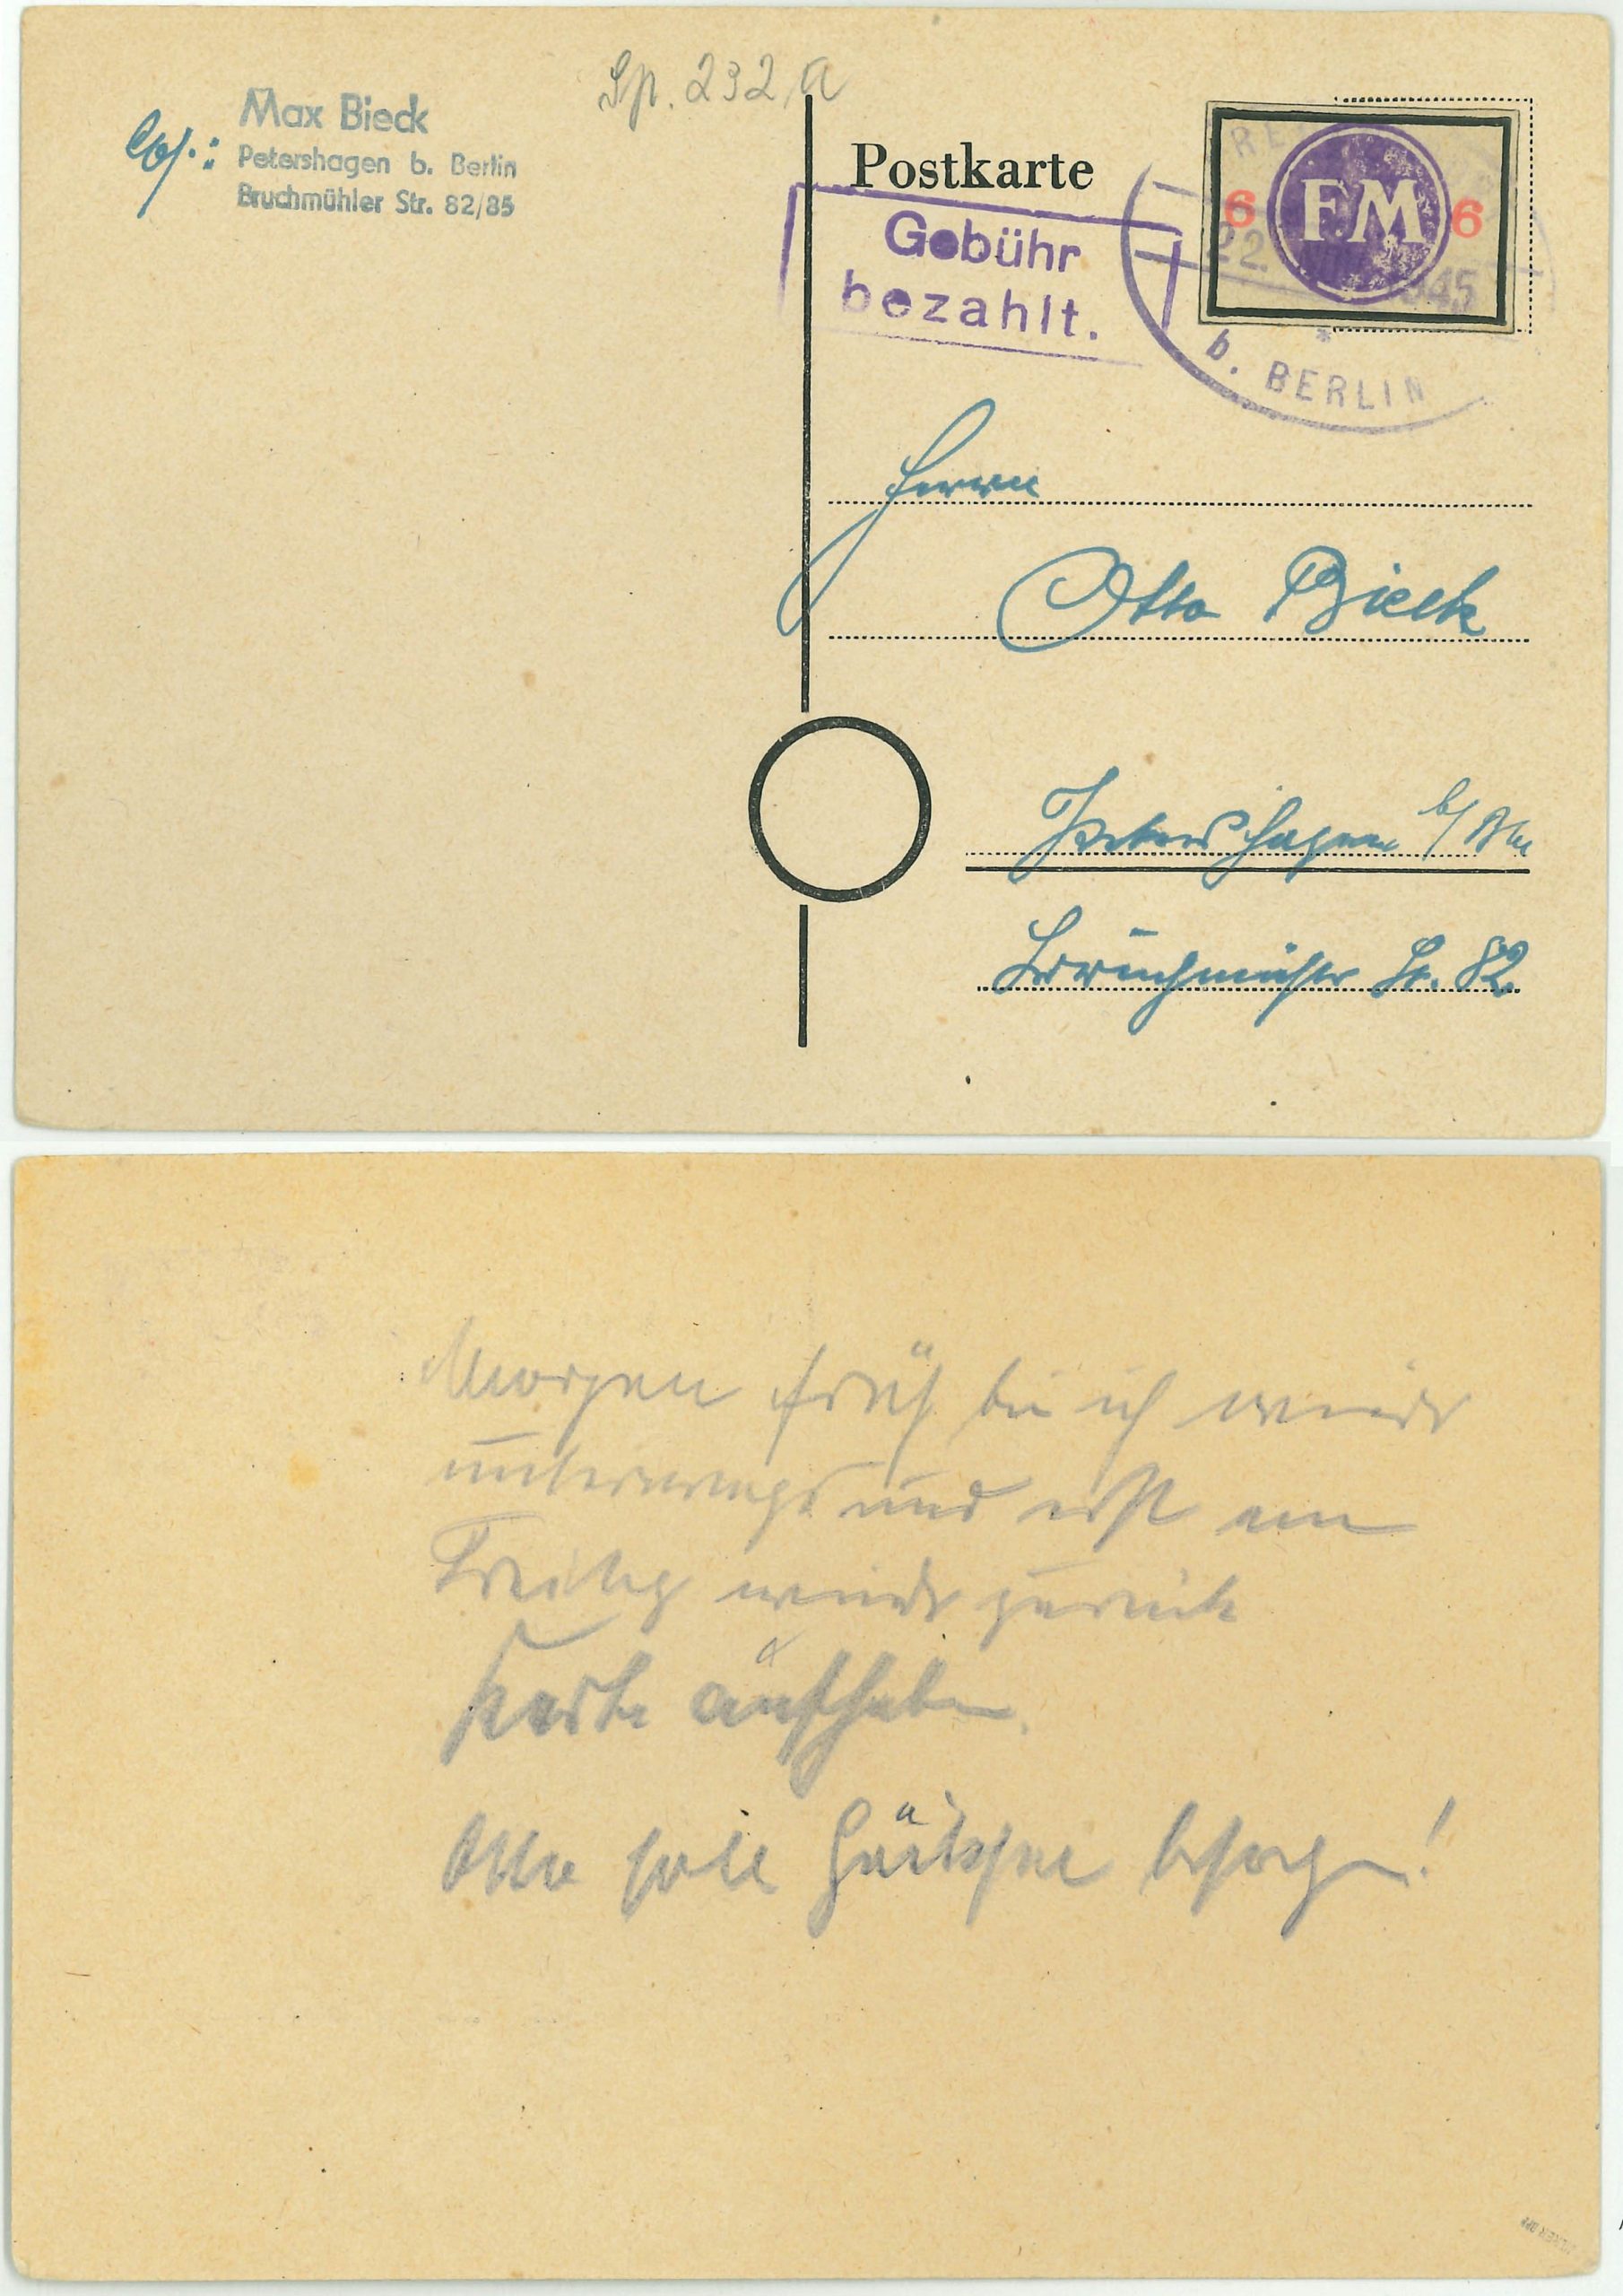 Sp. 232 a
Abs.:
Max Bieck
Petershagen b. Berlin
Bruchmühler Str. 82/85
Postkarte
Gebühr
bezahlt.
6 FM 6
22. 1945
b. BERLIN
Herrn
Otto Bieck
Petershagen b/Bln
Bruchmühler Str. 82
Morgen früh bin ich wieder
unterwegs und erst am
Freitag wieder zurück
Karte aufheben.
Otto soll besorgen!